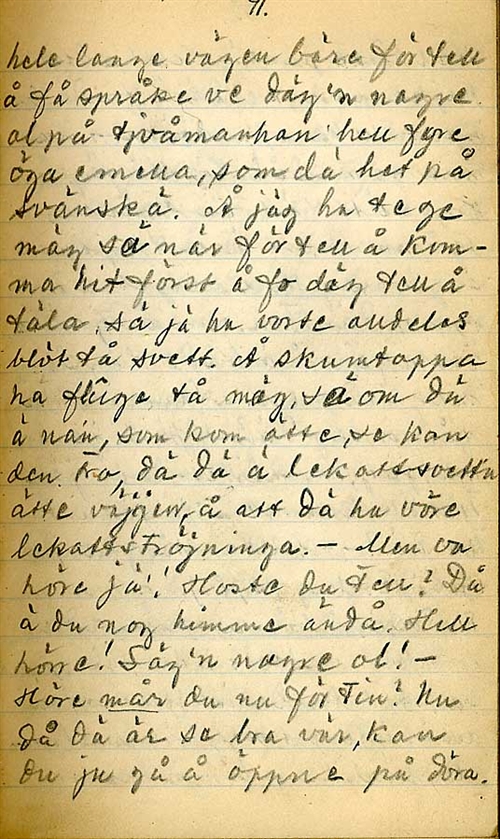 71.
hele lange vägen bära för tell
å få språke ve däg'n nagre
ol på tjvåmanhan hell fyre
öga emella, som dä het på
Svänskä. Å jäg ha tege
mäg så när för tell å kom-
ma hit först å fo däg tell å
tåla, så jä ha vorte andeles
blöt tå svett. Å skumtappa
ha flûge tå mäg, så om dä
ä nan, som kom ätte, se kan
den tro, dä dä ä lekattsvettn
ätte väjjen, å att dä ha vöre
lekattströjninga. — Men va
höre jä! Hoste du tell? Då
ä du nog himme ändå. Hell
hörre! Säg'n nagre ol! —
Höre mår du nu för tin? Nu
då dä är se bra vär, kan
du ju gå å öppne på döra.